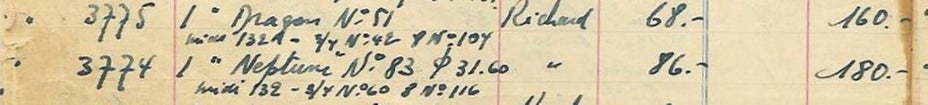 " 3775 1 " Dragon N° 51 Richard 68.- 160.-
midi 132A - 3/4 N° 42 8 N° 104
" 3774 1 " Neptune N° 83 $ 31.60 " 86.- 180.-
midi 132 - 3/4 N° 60 8 N° 116